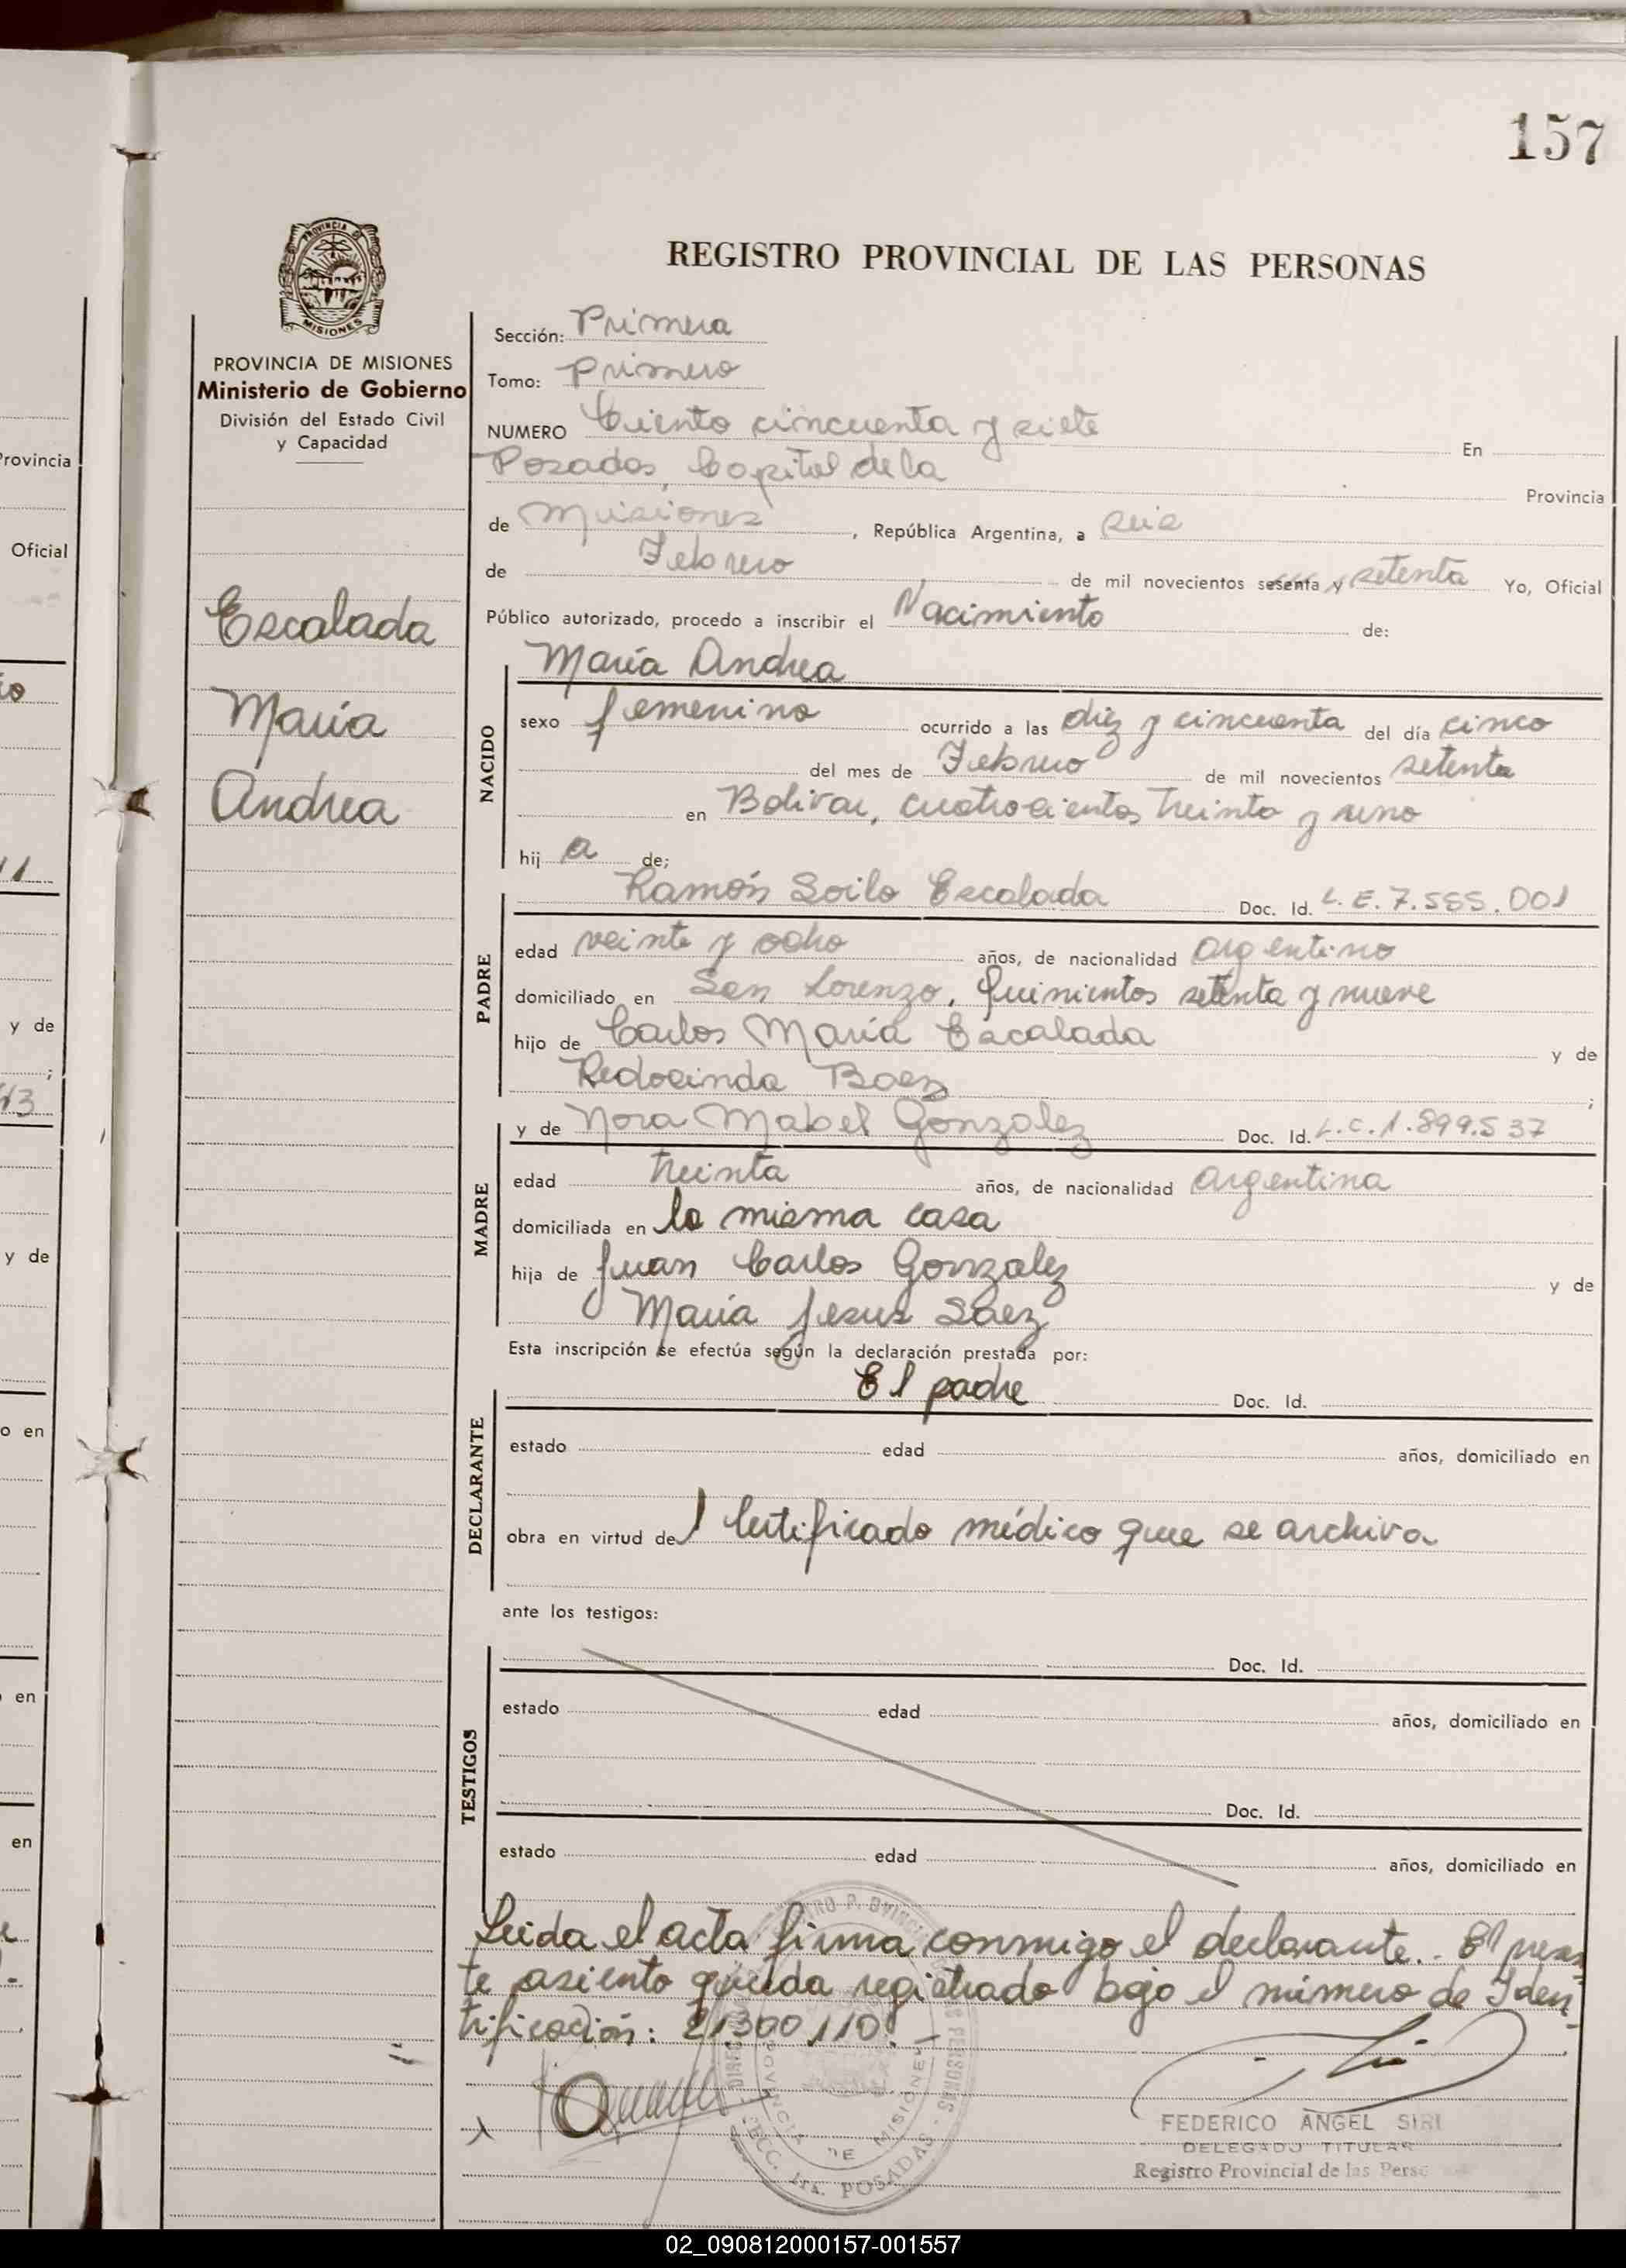 157
PROVINCIA DE
MISIONES
PROVINCIA DE MISIONES
Ministerio de Gobierno
División del Estado Civil
y Capacidad
Escalada
María
Andrea
REGISTRO PROVINCIAL DE LAS PERSONAS
Sección: Primera
Tomo: Primero
NUMERO Ciento cincuenta y siete En
Posadas, Capital de la Provincia
de Misiones, República Argentina, a seis
de Febrero de mil novecientos sesenta y setenta Yo, Oficial
Público autorizado, procedo a inscribir el Nacimiento de:
María Andrea
NACIDO
sexo femenino ocurrido a las diez y cincuenta del día cinco
del mes de Febrero de mil novecientos setenta
en Bolivar, cuatrocientos treinta y uno
hij a de;
Ramón Soilo Escalada Doc. Id. L.E. 7.585.001
PADRE
edad veinte y ocho años, de nacionalidad argentino
domiciliado en San Lorenzo, Quinientos setenta y nueve
hijo de Carlos María Escalada y de
Redocinda Baez ;
y de Nora Mabel Gonzalez Doc. Id. L.C. 1.899.537
MADRE
edad treinta años, de nacionalidad argentina
domiciliada en la misma casa
hija de Juan Carlos Gonzalez y de
María Jesus Saez
Esta inscripción se efectúa según la declaración prestada por:
El padre Doc. Id.
DECLARANTE
estado edad años, domiciliado en
obra en virtud de l Certificado médico que se archiva
ante los testigos:
Doc. Id.
TESTIGOS
estado edad años, domiciliado en
Doc. Id.
estado edad años, domiciliado en
Leida el acta firma conmigo el declarante.- El presen
te asiento queda registrado bajo el número de Iden-
tificación: 21300,110.-
PROVINCIA DE MISIONES
SECC. 1ra. POSADAS
FEDERICO ANGEL SIRI
DELEGADO TITULAR
Registro Provincial de las Perso
Provincia
Oficial
y de
;
43
y de
o en
en
en
02_090812000157-001557